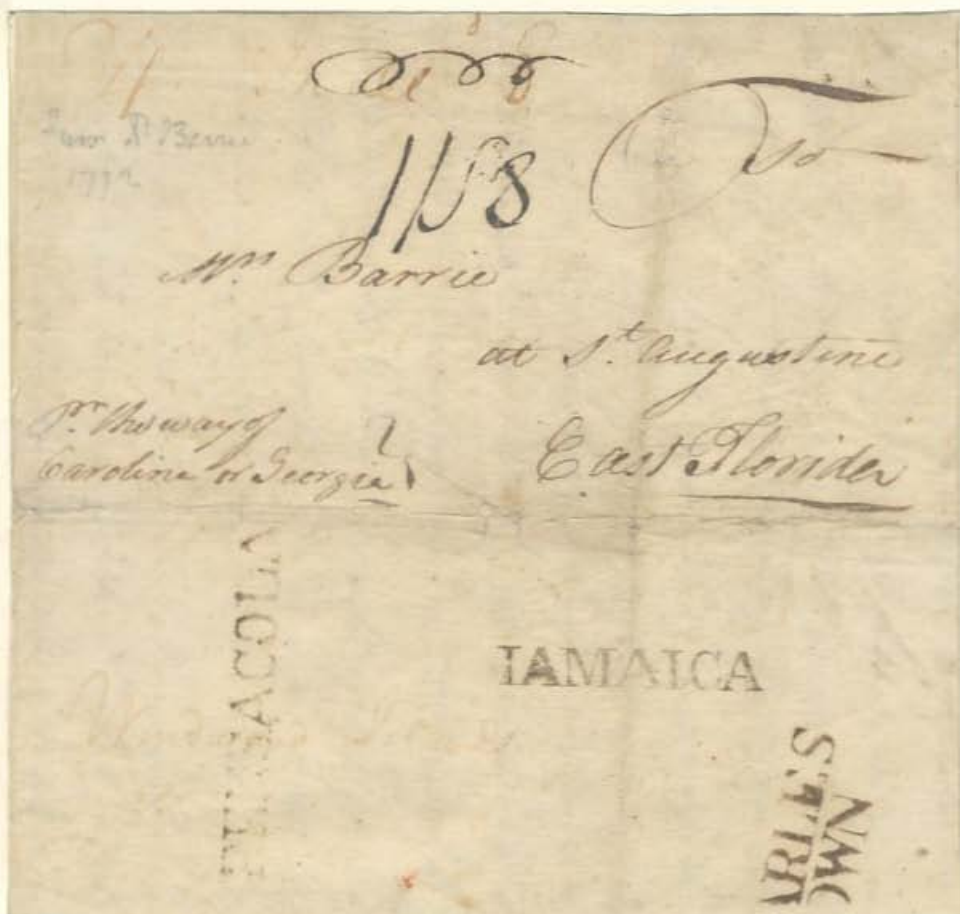 To
Mrs. Barrie
at St. Augustine
East Florida
pr. the way of
Caroline or Georgia
PENSACOLA
IAMAICA
ARLES
OWN